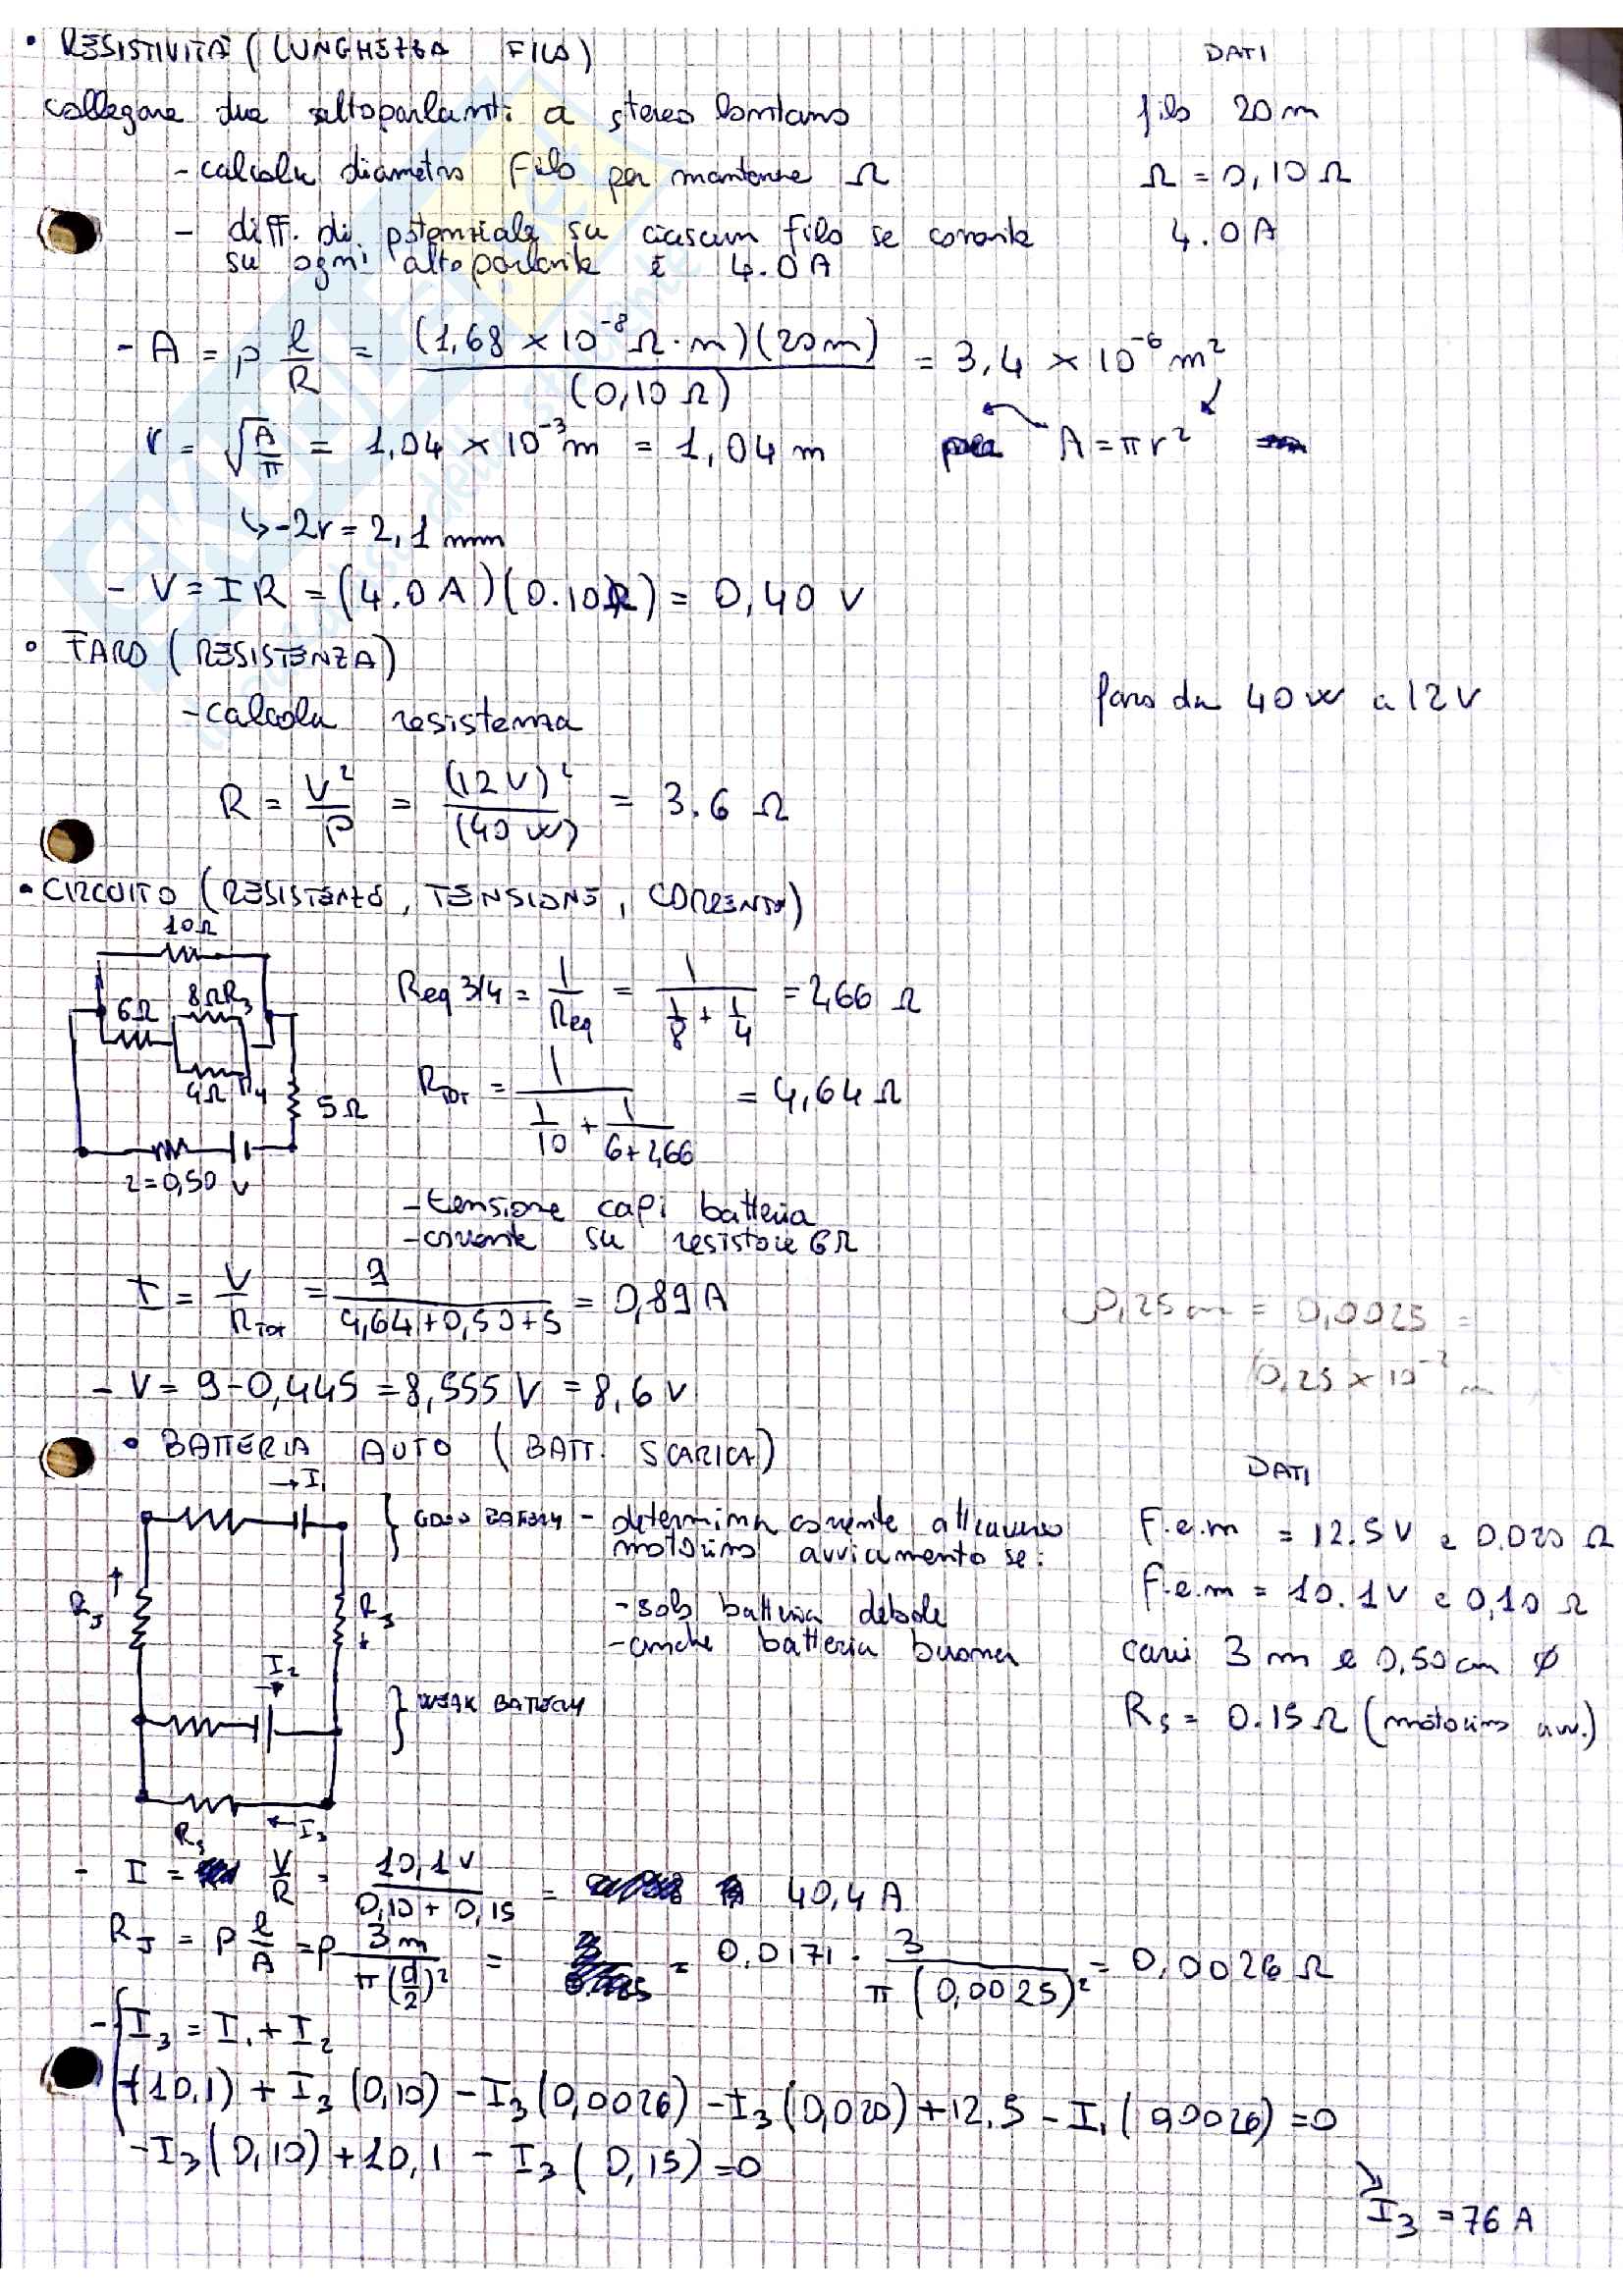 • RESISTIVITÀ (LUNGHEZZA FILO)
DATI
collegare due altoparlanti a stereo lontano
filo 20 m
- calcola diametro filo per mantenere Ω
Ω = 0,10 Ω
- diff. di potenziale su ciascun filo se corrente
4.0 A
su ogni altoparlante è 4.0 A
- A = ρ l/R = (1,68 × 10⁻⁸ Ω·m)(20m) / (0,10 Ω) = 3,4 × 10⁻⁶ m²
r = √(A/π) = 1,04 × 10⁻³ m = 1,04 m A = πr²
↳ - 2r = 2,1 mm
- V = IR = (4.0 A)(0.10Ω) = 0,40 V
• FARO (RESISTENZA)
faro da 40 W a 12 V
- calcola resistenza
R = V²/P = (12 V)²/(40 W) = 3.6 Ω
• CIRCUITO (RESISTENZE, TENSIONE, CORRENTE)
10Ω
6Ω 8Ω R3
4Ω R4
5Ω
r = 0,50 V
Req 3/4 = 1/Req = 1/(1/8 + 1/4) = 2,66 Ω
RTOT = 1/(1/10 + 1/(6+2,66)) = 4,64 Ω
- tensione capi batteria
- corrente su resistore 6Ω
I = V/RTOT = 9/(4,64+0,50+5) = 0,89 A
0,25 cm = 0,0025 =
0,25 × 10⁻² m
- V = 9 - 0,445 = 8,555 V = 8,6 V
• BATTERIA AUTO (BATT. SCARICA)
DATI
→ I1
} GOOD BATTERY
- determina corrente attraverso
motorino avviamento se:
- solo batteria debole
- anche batteria buona
F.e.m = 12.5 V e 0.020 Ω
F.e.m = 10.1 V e 0,10 Ω
cavi 3 m e 0,50 cm ⌀
RS = 0.15 Ω (motorino avv.)
RJ
RJ
I2
} WEAK BATTERY
RS ← I3
- I = V/R = 10,1 V/(0,10 + 0,15) = 40,4 A
RJ = ρ l/A = ρ 3 m/(π(d/2)²) = = 0.0171 · 3/(π(0,0025)²) = 0,0026 Ω
- { I3 = I1 + I2
-(10,1) + I3 (0,10) - I3 (0,0026) - I3 (0,020) + 12,5 - I1 (0,0026) = 0
-I3 (0,10) + 10,1 - I3 (0,15) = 0
I3 = 76 A